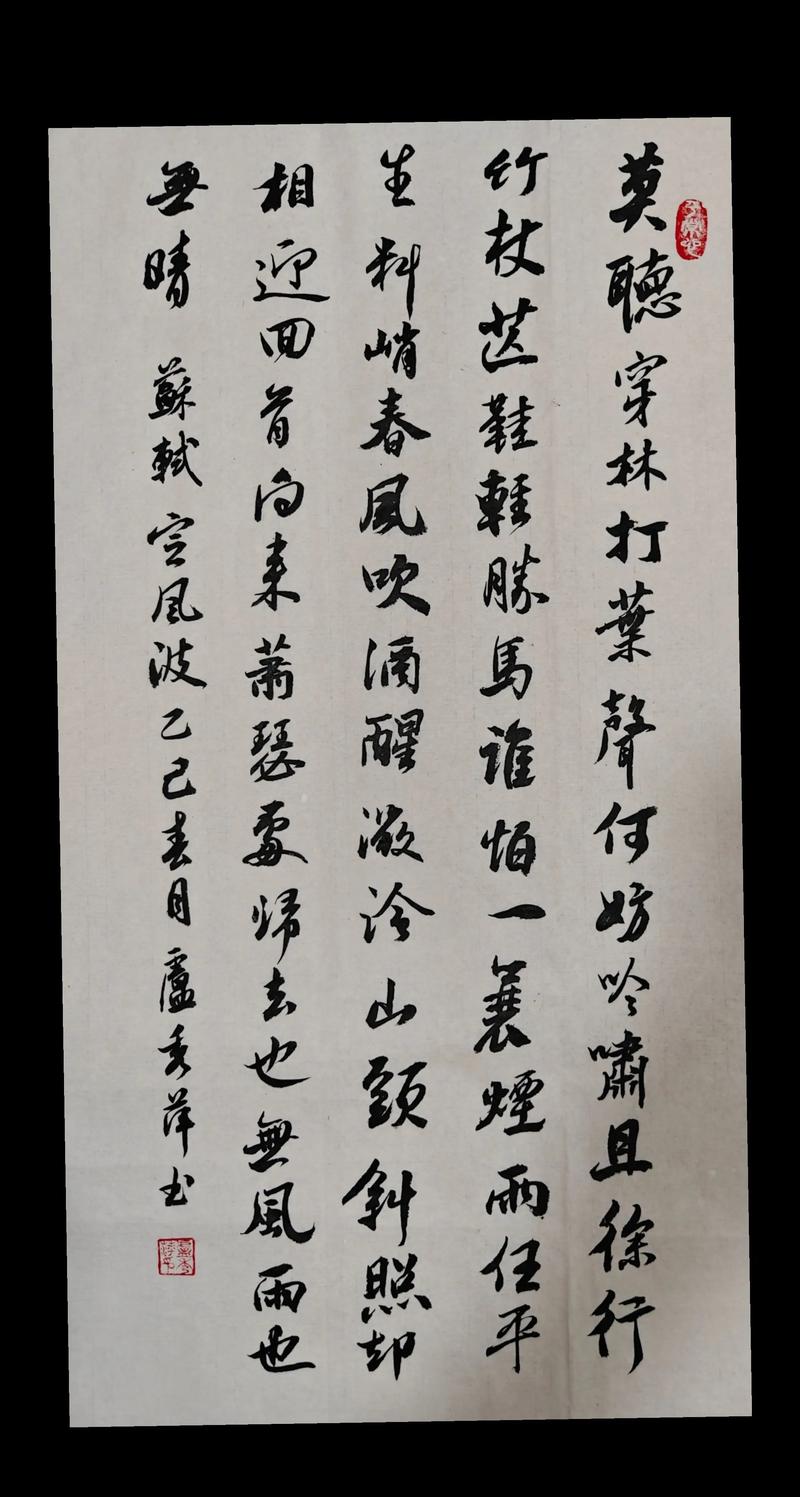 莫聽穿林打葉聲何妨吟嘯且徐行
竹杖芒鞋輕勝馬誰怕一蓑煙雨任平
生料峭春風吹酒醒微冷山頭斜照却
相迎回首向来蕭瑟處歸去也無風雨也
無晴 蘇軾定風波乙巳春月盧秀萍书